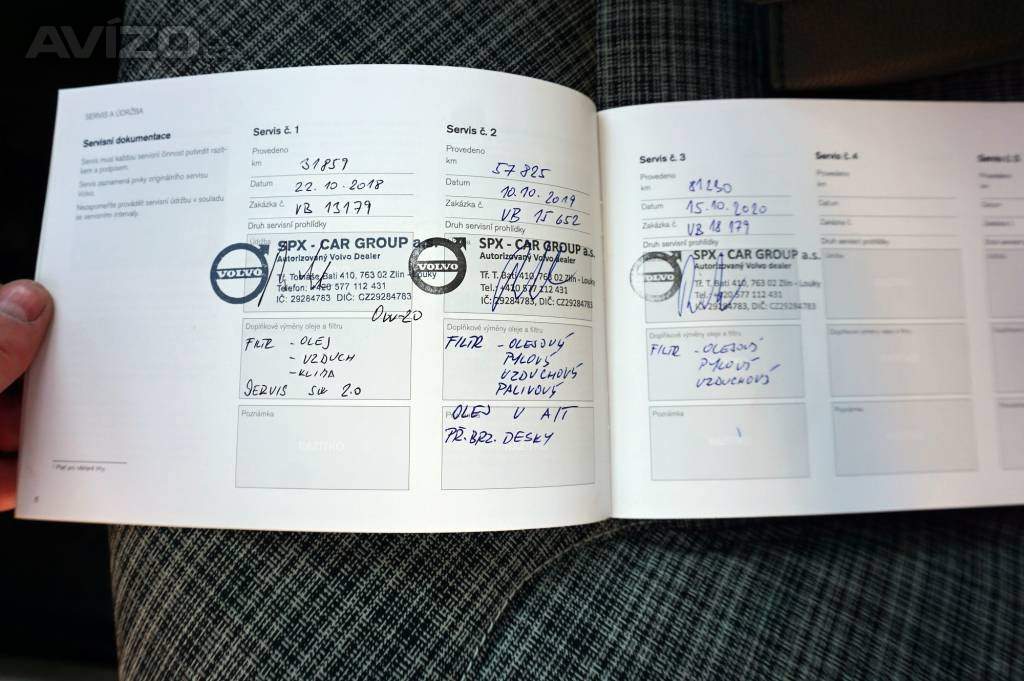 AVÍZO
SERVIS A ÚDRŽBA
Servisní dokumentace
Servis musí každou servisní činnost potvrdit razít-
kem a podpisem.
Servis zaznamená prvky originálního servisu
Volvo.
Nezapomeňte provádět servisní údržbu v souladu
se servisním intervaly.
Servis č. 1
Provedeno
km 31859
Datum 22.10.2018
Zakázka č. VB 13179
Druh servisní prohlídky
Údržba
VOLVO
SPX - CAR GROUP a.s.
Autorizovaný Volvo Dealer
Tř. Tomáše Bati 410, 763 02 Zlín - Louky
Telefon: +420 577 112 431
IČ: 29284783 DIČ: CZ29284783
0W-20
Doplňkové výměny oleje a filtru
FILTR - OLEJ
- VZDUCH
- KLIMA
SERVIS 2.0
Poznámka
RAZÍTKO
Servis č. 2
Provedeno
km 57825
Datum 10.10.2019
Zakázka č. VB 15652
Druh servisní prohlídky
VOLVO
SPX - CAR GROUP a.s.
Autorizovaný Volvo dealer
Tř. T. Bati 410, 763 02 Zlín - Louky
Tel.: +420 577 112 431
IČ: 29284783, DIČ: CZ29284783
Doplňkové výměny oleje a filtru
FILTR - OLEJOVÝ
PYLOVÝ
VZDUCHOVÝ
PALIVOVÝ
OLEJ V A/T
PŘ. BRZ. DESKY
Servis č. 3
Provedeno
km 81290
Datum 15.10.2020
Zakázka č. VB 18179
Druh servisní prohlídky
VOLVO
SPX - CAR GROUP a.s.
Autorizovaný Volvo dealer
Tř. T. Bati 410, 763 02 Zlín - Louky
Tel.: +420 577 112 431
IČ: 29284783, DIČ: CZ29284783
Doplňkové výměny oleje a filtru
FILTR - OLEJOVÝ
PYLOVÝ
VZDUCHOVÝ
Poznámka
RAZÍTKO
Servis č. 4
Provedeno
km
Datum
Zakázka č.
Druh servisní prohlídky
Údržba
Doplňkové výměny oleje a filtru
Poznámka